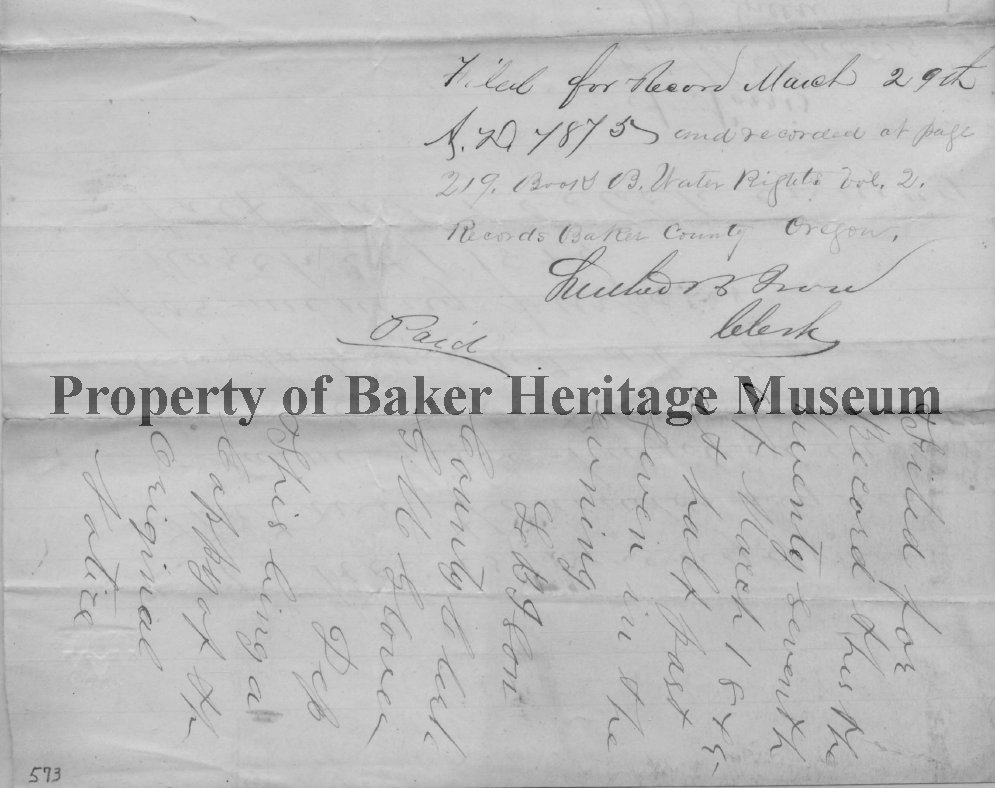 Filed for Record March 29th
A.D. 1875 and recorded at page
219. Book B. Water Rights Vol. 2.
Records Baker County Oregon.
Clerk
Paid
Property of Baker Heritage Museum
Filed for
Record this the
twenty seventh
of March 18
at half past
seven in the
evning
County Clerk
Dep
This being a
Coppy of the
Original
Notice
573